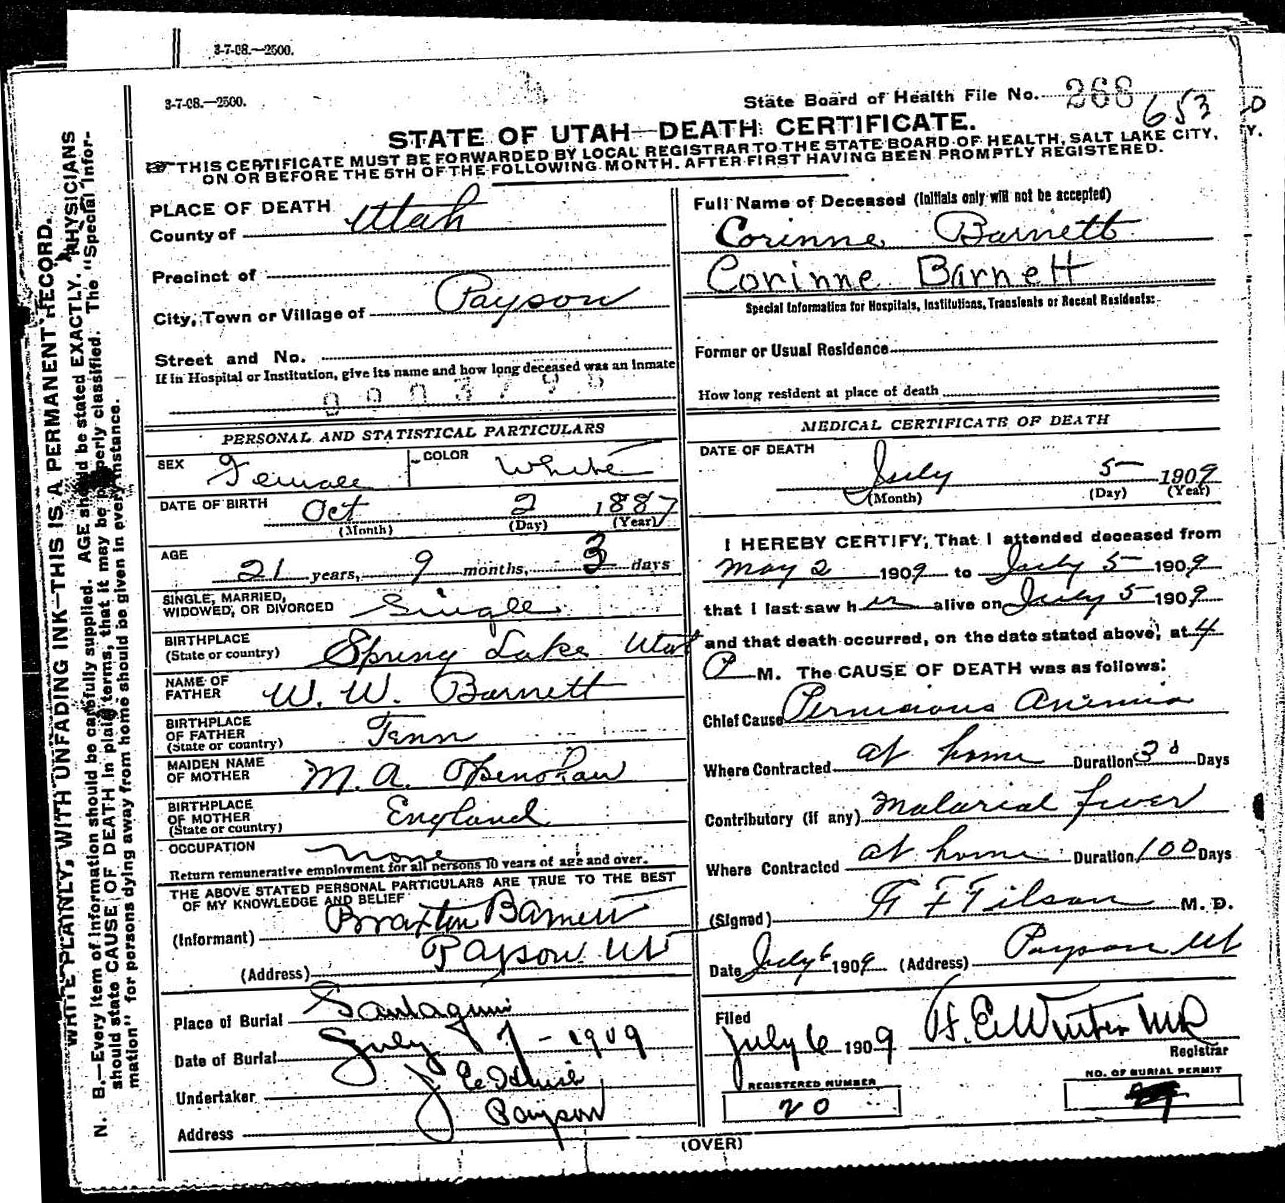 3-7-08.—2500.
3-7-08.—2500.
State Board of Health File No. 268
653
STATE OF UTAH—DEATH CERTIFICATE.
THIS CERTIFICATE MUST BE FORWARDED BY LOCAL REGISTRAR TO THE STATE BOARD OF HEALTH, SALT LAKE CITY,
ON OR BEFORE THE 5TH OF THE FOLLOWING MONTH. AFTER FIRST HAVING BEEN PROMPTLY REGISTERED.
WRITE PLAINLY, WITH UNFADING INK—THIS IS A PERMANENT RECORD.
N. B.—Every item of information should be carefully supplied. AGE should be stated EXACTLY. PHYSICIANS
should state CAUSE OF DEATH in plain terms, that it may be properly classified. The "Special Infor-
mation" for persons dying away from home should be given in every instance.
PLACE OF DEATH
County of Utah
Precinct of
City, Town or Village of Payson
Street and No.
If in Hospital or Institution, give its name and how long deceased was an inmate
PERSONAL AND STATISTICAL PARTICULARS
SEX Female COLOR White
DATE OF BIRTH Oct 2 1887
(Month) (Day) (Year)
AGE 21 years, 9 months, 3 days
SINGLE, MARRIED,
WIDOWED, OR DIVORCED Single
BIRTHPLACE
(State or country) Spring Lake Utah
NAME OF
FATHER W. W. Barnett
BIRTHPLACE
OF FATHER
(State or country) Tenn
MAIDEN NAME
OF MOTHER M. A. Openshaw
BIRTHPLACE
OF MOTHER
(State or country) England
OCCUPATION none
Return remunerative employment for all persons 10 years of age and over.
THE ABOVE STATED PERSONAL PARTICULARS ARE TRUE TO THE BEST
OF MY KNOWLEDGE AND BELIEF
(Informant) Braxton Barnett
(Address) Payson Ut
Place of Burial Santaquin
Date of Burial July 7-1909
Undertaker
Address Payson
Full Name of Deceased (Initials only will not be accepted)
Corinne Barnett
Corinne Barnett
Special Information for Hospitals, Institutions, Transients or Recent Residents:-
Former or Usual Residence
How long resident at place of death
MEDICAL CERTIFICATE OF DEATH
DATE OF DEATH
July 5 1909
(Month) (Day) (Year)
I HEREBY CERTIFY, That I attended deceased from
May 2 1909 to July 5 1909
that I last saw her alive on July 5 1909
and that death occurred, on the date stated above, at 4
P M. The CAUSE OF DEATH was as follows:
Chief Cause Pernicious Anemia
Where Contracted at home Duration Days
Contributory (if any) Malarial fever
Where Contracted at home Duration 100 Days
(Signed) Tilson M. D.
Date July 6 1909 (Address) Payson Ut
Filed
July 6 1909 Winter MD
Registrar
REGISTERED NUMBER
20
NO. OF BURIAL PERMIT
(OVER)